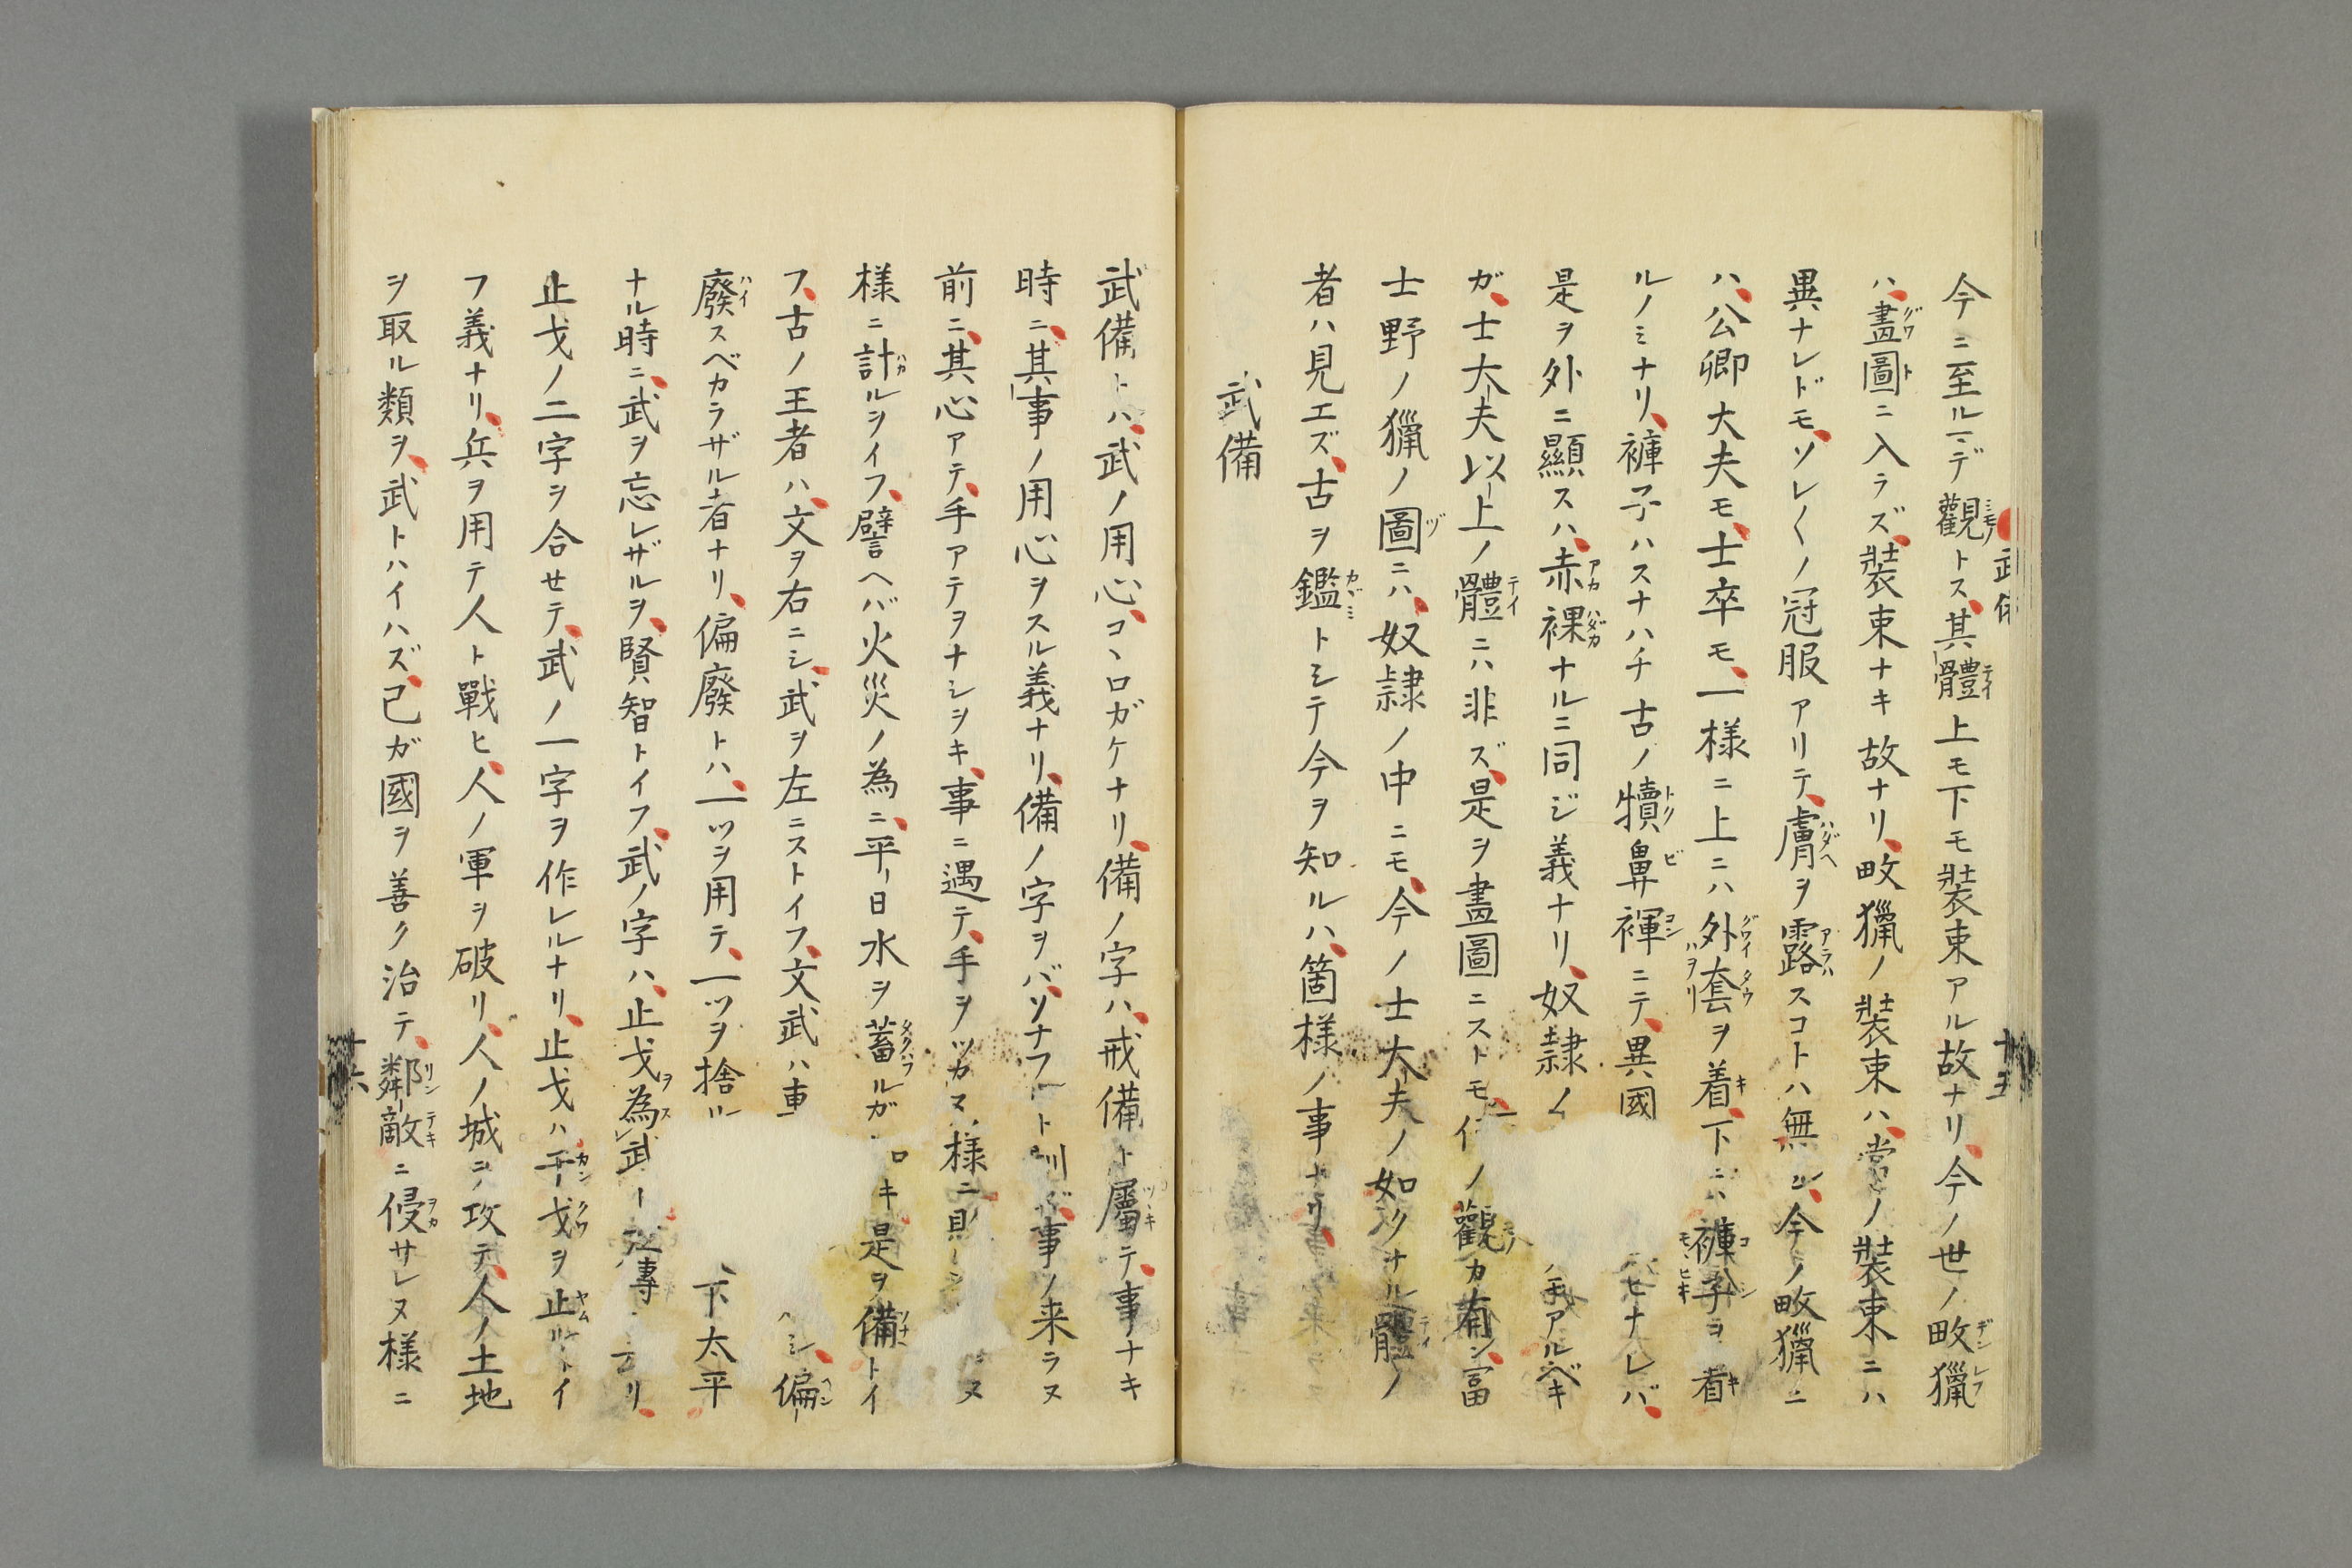 今ニ至ルマデ觀トス、其體上モ下モ裝束アル故ナリ、今ノ世ノ畋獵
ハ、畵圖ニ入ラズ、裝束ナキ故ナリ、畋獵ノ裝束ハ、常ノ裝束ニハ
異ナレドモ、ソレ〱ノ冠服アリテ、膚ヲ露スコトハ無シ、今ノ畋獵ニ
ハ、公卿大夫モ、士卒モ、一様ニ上ニハ外套ヲ着、下ニハ褲子ヲ着
ルノミナリ、褲子ハスナハチ古ノ犢鼻褌ニテ、異國 ヒナレバ、
是ヲ外ニ顯スハ、赤裸ナルニ同ジ義ナリ、奴隷 アルベキ
ガ、士大夫以上ノ體ニハ非ズ、是ヲ畵圖ニストモ、何ノ觀カ有ン、富
士野ノ獵ノ圖ニハ、奴隷ノ中ニモ、今ノ士大夫ノ如クナル體ノ
者ハ見エズ、古ヲ鑑トシテ今ヲ知ルハ、箇様ノ事ナリ、
武備
武備トハ、武ノ用心、コヽロガケナリ、備ノ字ハ、戒備ト屬テ、事ナキ
時ニ、其事ノ用心ヲスル義ナリ、備ノ字ヲバ、ソナフト訓ズ、事ノ来ラヌ
前ニ、其心アテ、手アテヲナシヲキ、事ニ遇テ、手ヲツカヌ様ニ ヌ
様ニ計ルヲイフ、譬ヘバ火災ノ為ニ、平日水ヲ蓄ルガ ロキ是ヲ備トイ
フ、古ノ王者ハ、文ヲ右ニシ、武ヲ左ニストイフ、文武ハ車 ヘシ、偏
廢スベカラザル者ナリ、偏廢トハ、一ツヲ用テ、一ツヲ捨ル 下太平
ナル時ニ、武ヲ忘レザルヲ、賢智トイフ、武ノ字ハ、止戈為武 傳 リ、
止戈ノ二字ヲ合セテ、武ノ一字ヲ作レルナリ、止戈ハ干戈ヲ止ルトイ
フ義ナリ、兵ヲ用テ人ト戰ヒ、人ノ軍ヲ破リ、人ノ城ヲ攻テ、人ノ土地
ヲ取ル類ヲ、武トハイハズ、己ガ國ヲ善ク治テ、鄰敵ニ侵サレヌ様ニ